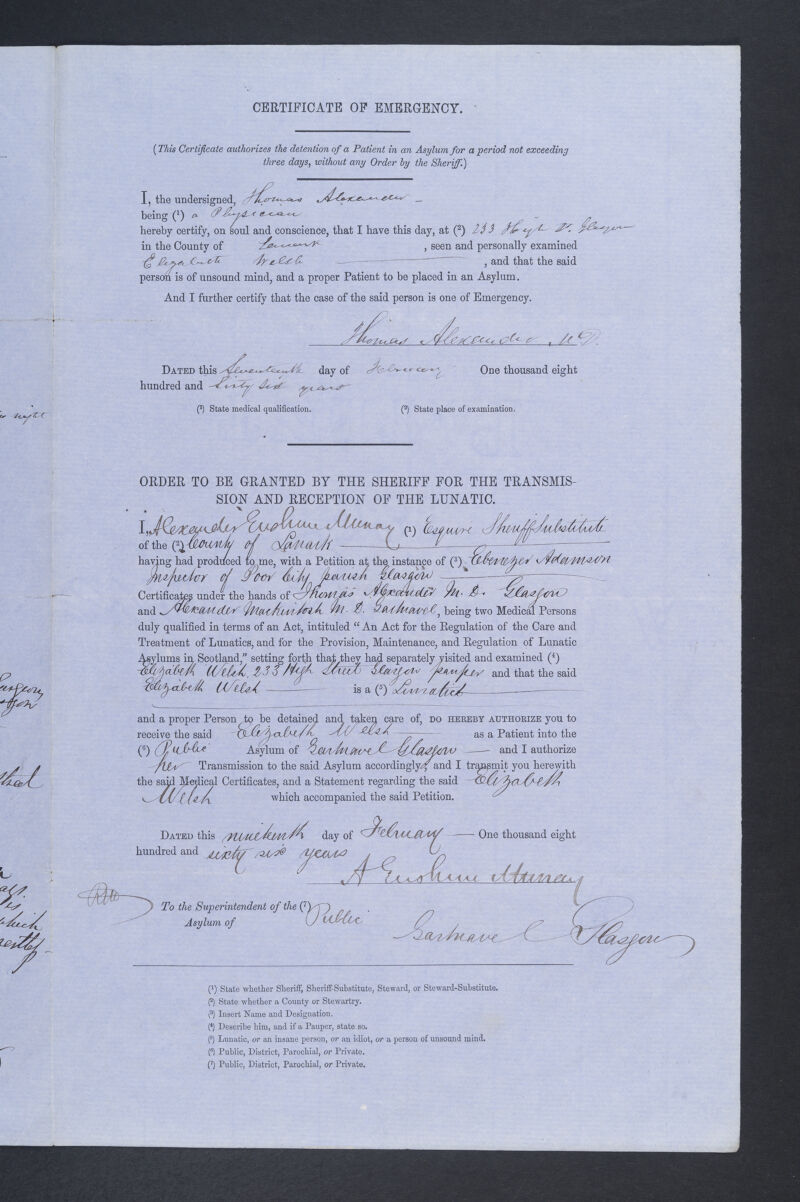 CERTIFICATE OF EMERGENCY.
(This Certificate authorizes the detention of a Patient in an Asylum for a period not exceeding
three days, without any Order by the Sheriff.)
I, the undersigned, Thomas Alexander
being (¹) a Physician
hereby certify, on soul and conscience, that I have this day, at (²) 233 High St. Glasgow
in the County of Lanark , seen and personally examined
Elizabeth Welsh , and that the said
person is of unsound mind, and a proper Patient to be placed in an Asylum.
And I further certify that the case of the said person is one of Emergency.
Thomas Alexander M.D.
DATED this Seventeenth day of February One thousand eight
hundred and Sixty six years
(¹) State medical qualification. (²) State place of examination.
ORDER TO BE GRANTED BY THE SHERIFF FOR THE TRANSMIS-
SION AND RECEPTION OF THE LUNATIC.
I, Alexander Erskine Murray (¹) Esquire Sheriff Substitute
of the (²) County of Lanark
having had produced to me, with a Petition at the instance of (³) Ebenezer Adamson
Inspector of Poor City parish Glasgow
Certificates under the hands of Thomas Alexander M.D. Glasgow
and Alexander Mackintosh M.D. Gartnavel, being two Medical Persons
duly qualified in terms of an Act, intituled "An Act for the Regulation of the Care and
Treatment of Lunatics, and for the Provision, Maintenance, and Regulation of Lunatic
Asylums in Scotland," setting forth that they had separately visited and examined (⁴)
Elizabeth Welsh, 233 High Street Glasgow pauper and that the said
Elizabeth Welsh is a (⁵) Lunatic
and a proper Person to be detained and taken care of, DO HEREBY AUTHORIZE you to
receive the said Elizabeth Welsh as a Patient into the
(⁶) Public Asylum of Gartnavel Glasgow and I authorize
her Transmission to the said Asylum accordingly; and I transmit you herewith
the said Medical Certificates, and a Statement regarding the said Elizabeth
Welsh which accompanied the said Petition.
DATED this nineteenth day of February One thousand eight
hundred and sixty six years
A Erskine Murray
To the Superintendent of the (⁷) Public
Asylum of Gartnavel Glasgow
(¹) State whether Sheriff, Sheriff-Substitute, Steward, or Steward-Substitute.
(²) State whether a County or Stewartry.
(³) Insert Name and Designation.
(⁴) Describe him, and if a Pauper, state so.
(⁵) Lunatic, or an insane person, or an idiot, or a person of unsound mind.
(⁶) Public, District, Parochial, or Private.
(⁷) Public, District, Parochial, or Private.
night
which